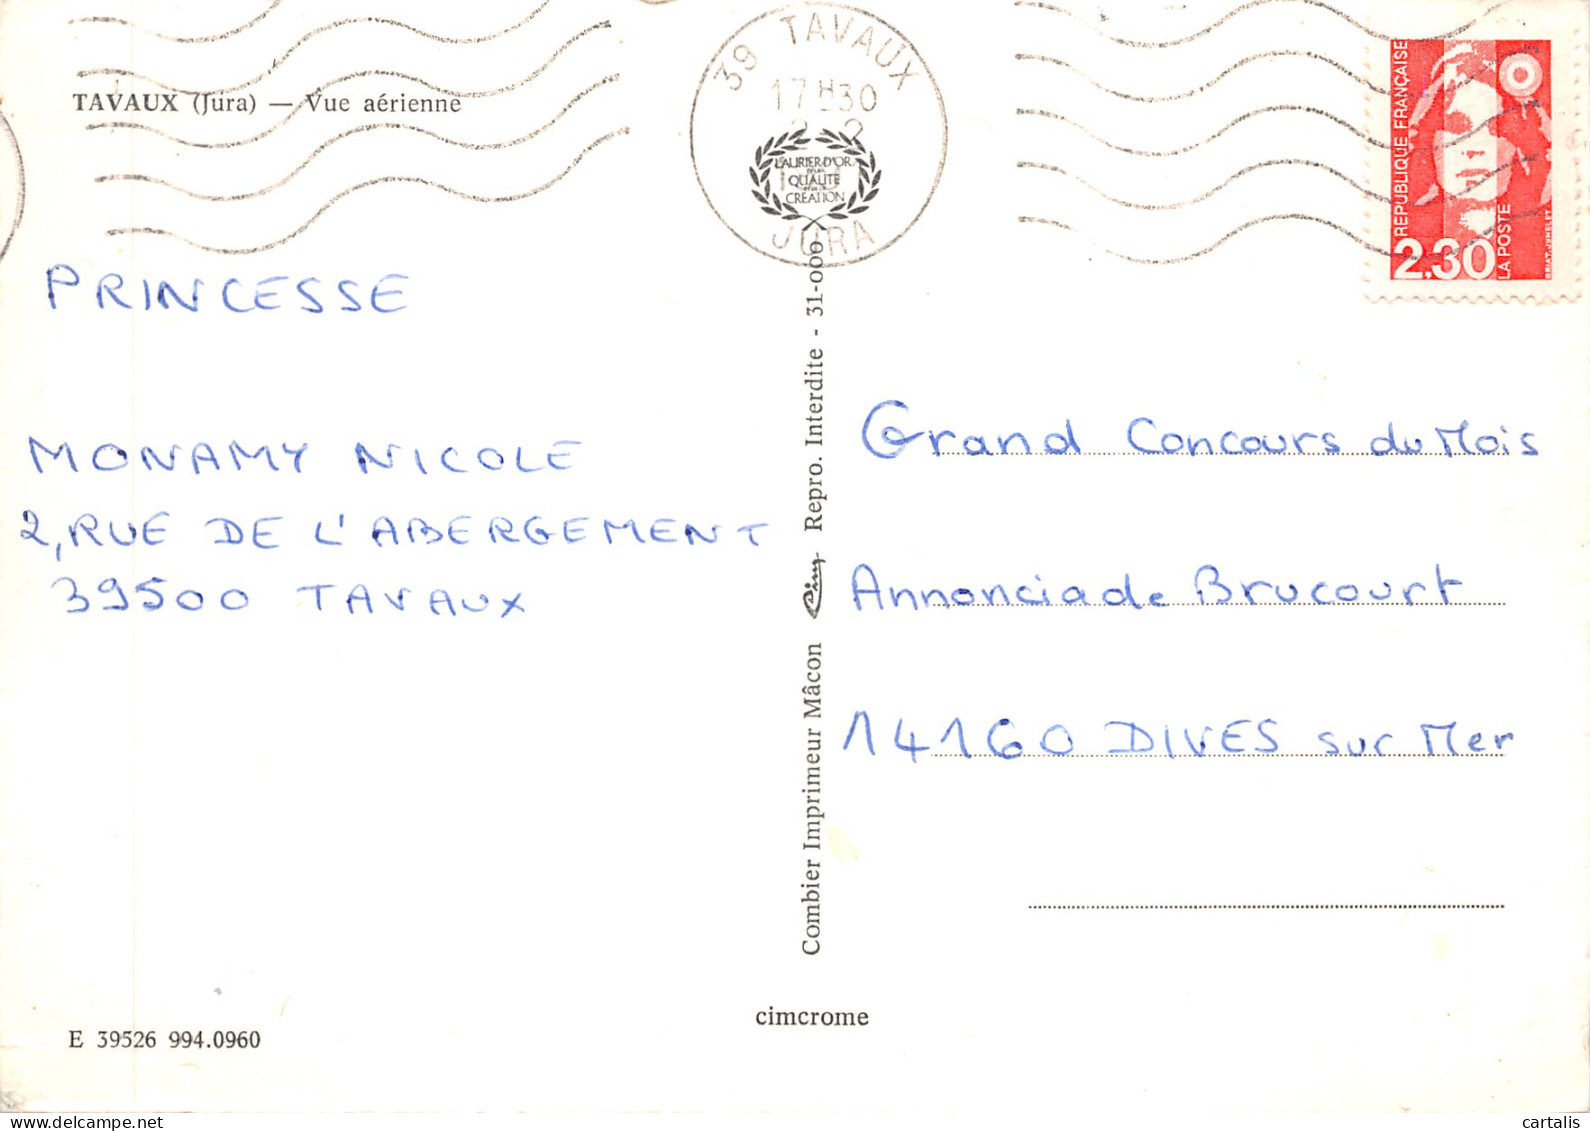 TAVAUX (Jura) — Vue aérienne
39 TAVAUX
17 H 30
JURA
LAURIER D'OR
DE LA
QUALITÉ
CRÉATION
REPUBLIQUE FRANÇAISE
2,30
LA POSTE
BRIAT-JUMELET
PRINCESSE
MONAMY NICOLE
2, RUE DE L'ABERGEMENT
39500 TAVAUX
Combier Imprimeur Mâcon Cim Repro. Interdite - 31-000
Grand Concours du Mois
Annonciade Brucourt
14160 DIVES sur Mer
cimcrome
E 39526 994.0960
cartalis